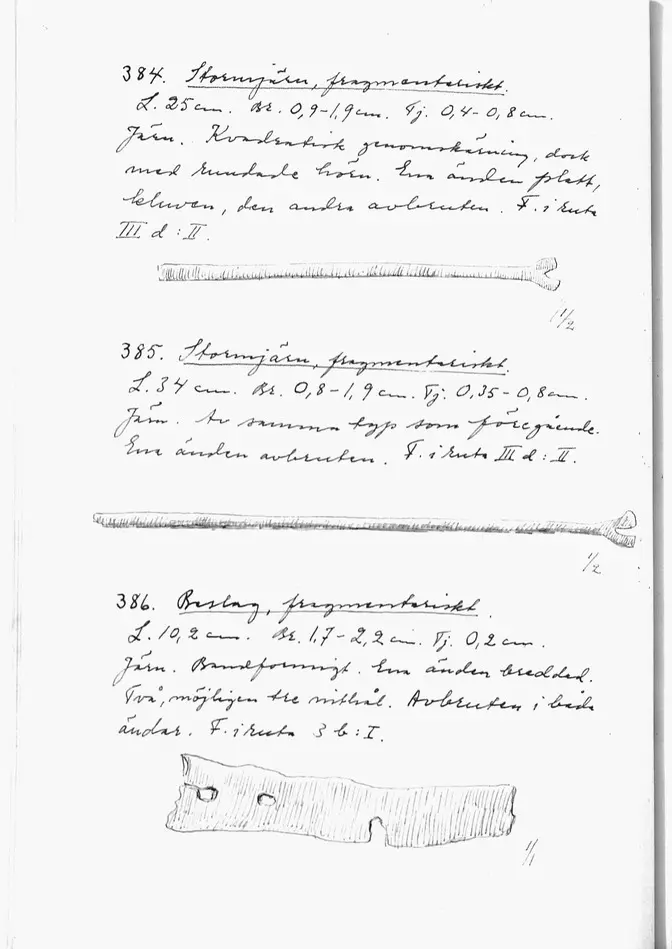 384. Stormjärn, fragmentariskt.
L. 25 cm. Br. 0,9-1,9 cm. Tj. 0,4-0,8 cm.
Järn. Kvadratisk genomskärning, dock
med rundade hörn. Ena änden platt,
kluven, den andra avbruten. F. i ruta
III d : II.
1/2
385. Stormjärn, fragmentariskt.
L. 34 cm. Br. 0,8-1,9 cm. Tj. 0,35-0,8 cm.
Järn. Av samma typ som föregående.
Ena änden avbruten. F. i ruta III d : II.
1/2
386. Beslag, fragmentariskt.
L. 10,2 cm. Br. 1,7-2,2 cm. Tj. 0,2 cm.
Järn. Bandformigt. Ena änden breddad.
Två, möjligen tre nithål. Avbruten i båda
ändar. F. i ruta 3 b : I.
1/1